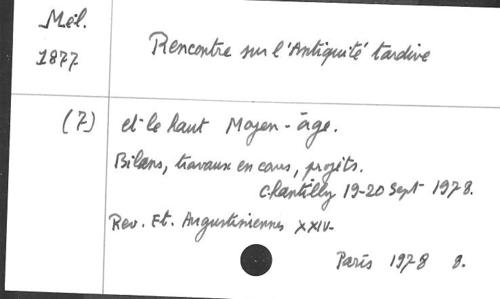 Mél.
1877
Rencontre sur l'Antiquité tardive
(7) et le haut Moyen-âge.
Bilans, travaux en cours, projets.
Chantilly 19-20 Sept 1978.
Rev. Et. Augustiniennes XXIV
Paris 1978 8.